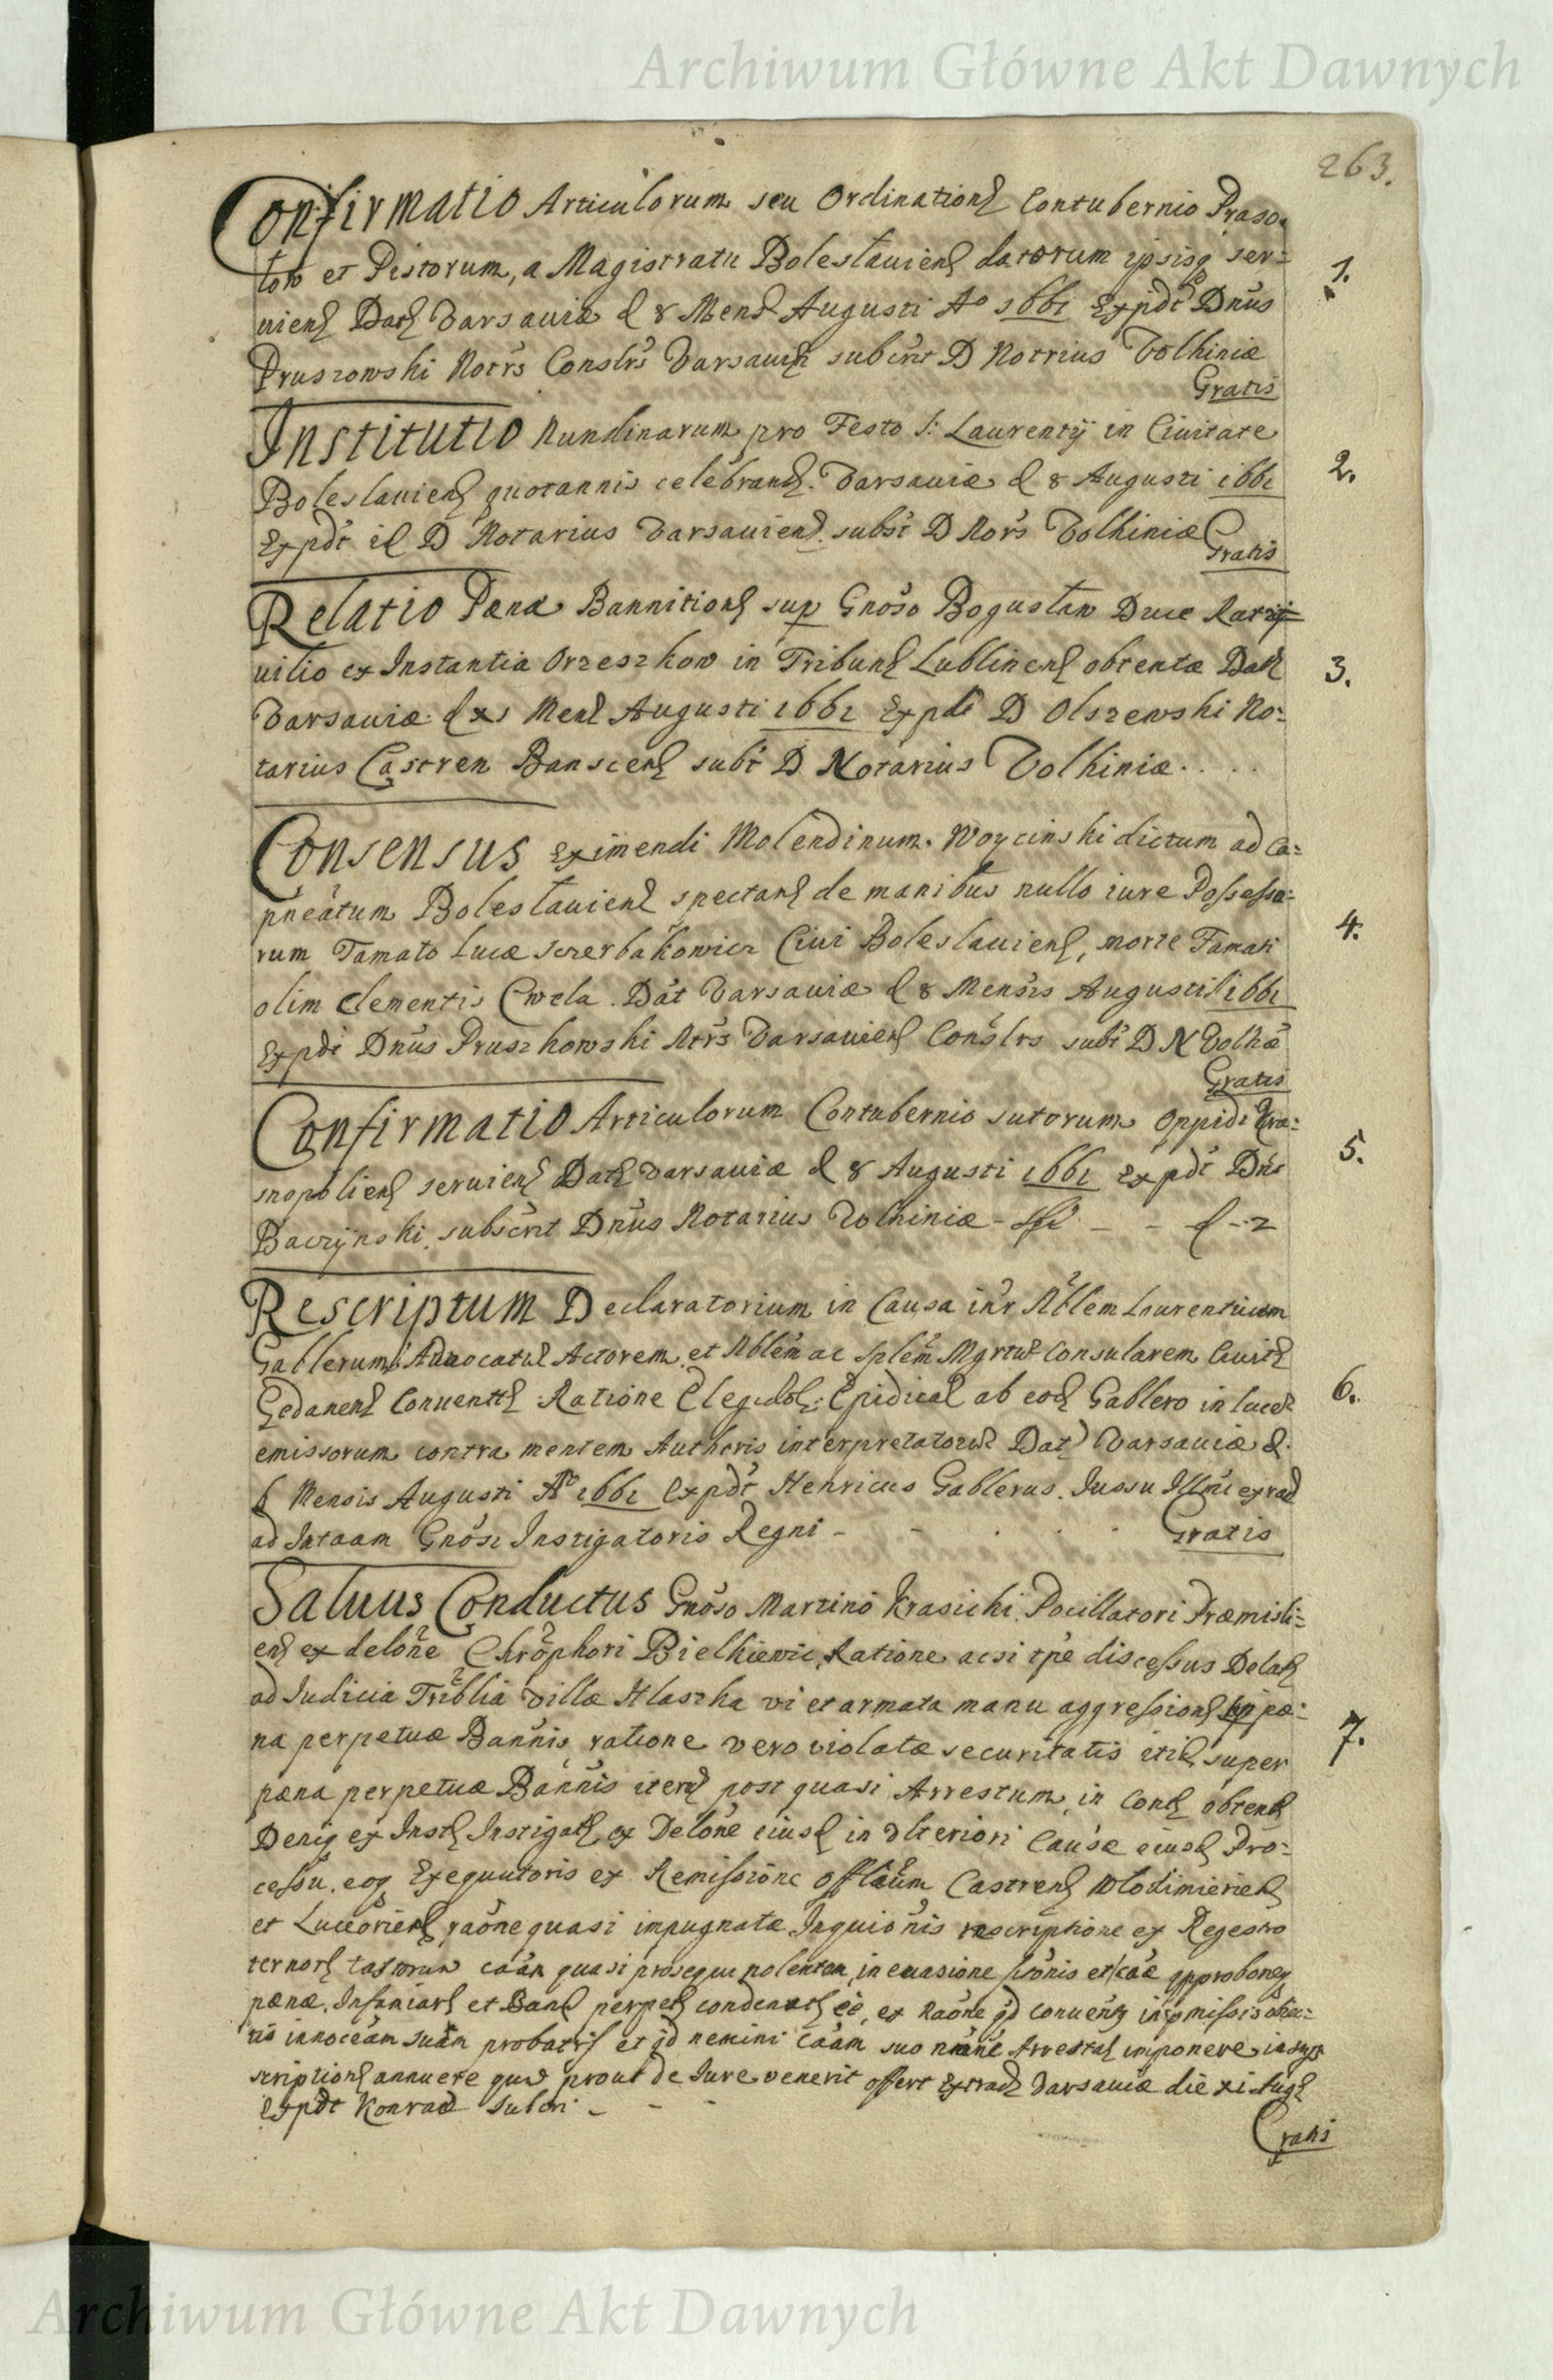 Archiwum Główne Akt Dawnych
263.
Confirmatio Articulorum seu Ordination Contubernio Praso-
low et Pistorum, a Magistratu Boleslauien datorum ipsisq ser-
1.
uien Dat Varsauiæ d 8 Mens Augusti Aº 1661 Expdt Dnus
Pruszowski Notrs Conslrs Varsauien subcrit D Notrius Volhiniæ
Gratis
Institutio Nundinarum pro Festo S: Laurentij in Ciuitate
Boleslauien quotannis celebrand. Varsauiæ d 8 Augusti 1661
2.
Expdt id D Notarius Varsauiens. subst D Nors Volhiniæ
Gratis
Relatio Pænæ Bannition sup Gnoso Boguslao Duce Ratzi-
uilio ex Instantia Orzeszkow in Tribun Lublinen obtentæ Dat
3.
Varsauiæ d xi Mens Augusti 1661 Expdt D Olszewski No-
tarius Castren subt D Notarius Volhiniæ
Consensus Eximendi Molendinum Woycinski dictum ad Ca-
pneatum Boleslauien spectan de manibus nullo iure Possesso-
4.
rum Famato Lucæ Szerbakowicz Ciui Boleslauien, morte Famati
olim Clementis Cwela. Dat Varsauiæ d 8 Mensis Augusti 1661
Expdt Dnus Pruszkowski Ntrs Varsauien Conslrs subt D N Volhæ
Gratis
Confirmatio Articulorum Contubernio sutorum Oppidi Kra-
5.
snopolien seruien Dat Varsauiæ d 8 Augusti 1661 Expdt Dns
Baczynski. subscrit Dnus Notarius Volhiniæ
Rescriptum Declaratorium in Causa intr Nblem Laurentium
Gablerum Aduocatum Actorem et Nblem ac Splem Mgrtum Consularem Ciuit
Gedanen Conuent Ratione ab eod Gablero in lucem
6.
emissorum contra mentem Authoris interpretatorum Dat Varsauiæ d.
6 Mensis Augusti Aº 1661 Expdt Henricus Gablerus. Jussu Illmi extrad
ad Jntaam Gnosi Instigatoris Regni
Gratis
Saluus Conductus Gnoso Martino Krasicki Pocillatori Præmisli-
en ex delone Chrophori Bielkiewic, Ratione acsi tpe discessus Delat
ad Judicia Triblia Villæ Hlaszka vi et armata manu aggression sup pæ-
na perpetuæ Bannis, ratione vero violatæ securitatis itid super
7.
pæna perpetuæ Bannis iterum post quasi Arrestum in Cont obtent
Deniq ex Inst Instigat ex Delone eiusd in Vlteriori Causæ eiusd Pro-
cessu, eoq Exequutoris ex Remissione Offlium Castren Wlodimirien
et Luceorien raone quasi impugnatæ Inquionis rescriptione ex Regestro
quasi prosequi nolentem, in euasione
pænæ. et Ban perpet condemnat ee, ex Raone qd
innoceam suam et qd nemini caam suo imponere
scription annuere prout de Jure venerit offert Extrad Varsauiæ die xi Aug
Expdt Konrad Subcri
Gratis
Archiwum Główne Akt Dawnych